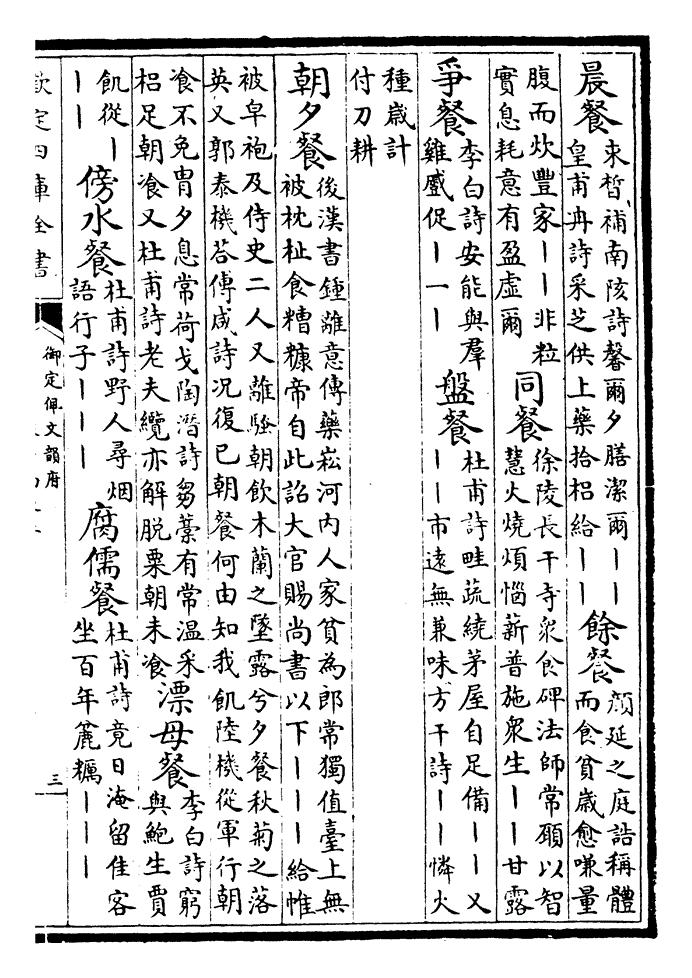 晨餐
束皙補南陔詩馨爾夕膳潔爾丨丨
皇甫冉詩采芝供上藥拾梠給丨丨
餘餐
顔延之庭誥稱體
而食貧歲愈嗛量
腹而炊豐家丨丨非粒
實息耗意有盈虛爾
同餐
徐陵長干寺衆食碑法師常願以智
慧火燒煩惱薪普施衆生丨丨甘露
爭餐
李白詩安能與羣
雞慼促丨一丨
盤餐
杜甫詩畦蔬繞茅屋自足備丨丨又
丨丨市遠無兼味方干詩丨丨憐火
種嵗計
付刀耕
朝夕餐
後漢書鍾離意傳藥崧河内人家貧為郎常獨值臺上無
被枕杫食糟糠帝自此詔大官賜尚書以下丨丨丨給帷
被皁袍及侍史二人又離騷朝飲木蘭之墜露兮夕餐秋菊之落
英又郭泰機荅傅咸詩况復已朝餐何由知我飢陸機從軍行朝
飡不免胄夕息常荷戈陶潛詩芻藁有常温采
梠足朝飡又杜甫詩老夫纜亦解脱粟朝未飡
漂母餐
李白詩窮
與鮑生賈
飢從丨
丨丨
傍水餐
杜甫詩野人尋烟
語行子丨丨丨
腐儒餐
杜甫詩竟日淹留佳客
坐百年麄糲丨丨丨
欽定四庫全書
御定佩文韻府
三